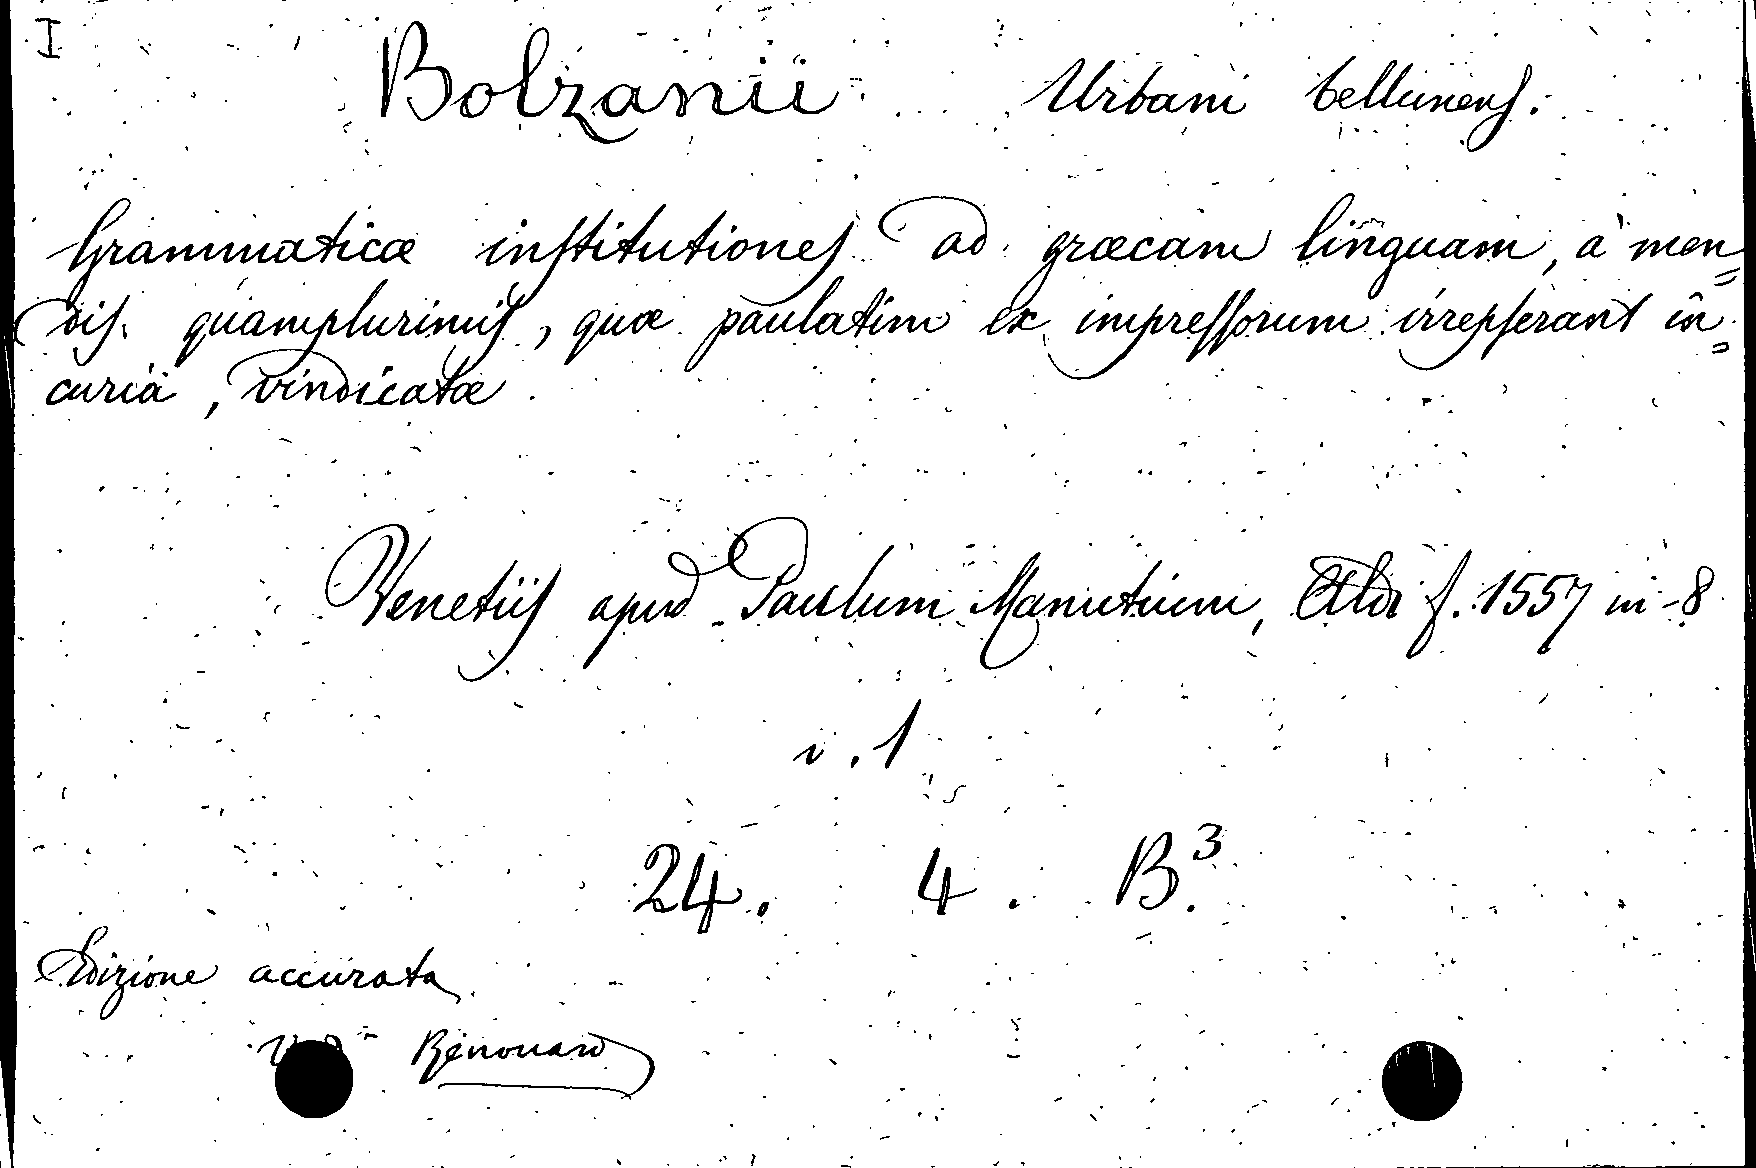 I
Bolzanii Urbani bellunens.
Grammaticæ institutiones ad græcam linguam, à men=
dis quamplurimis, quæ paulatim ex impressorum irrepserant in=
curiâ, vindicatæ
Venetiis apud Paulum Manutium, Aldi f. 1557 in-8
v. 1
24. 4. B.3
Edizione accurata
Renouard